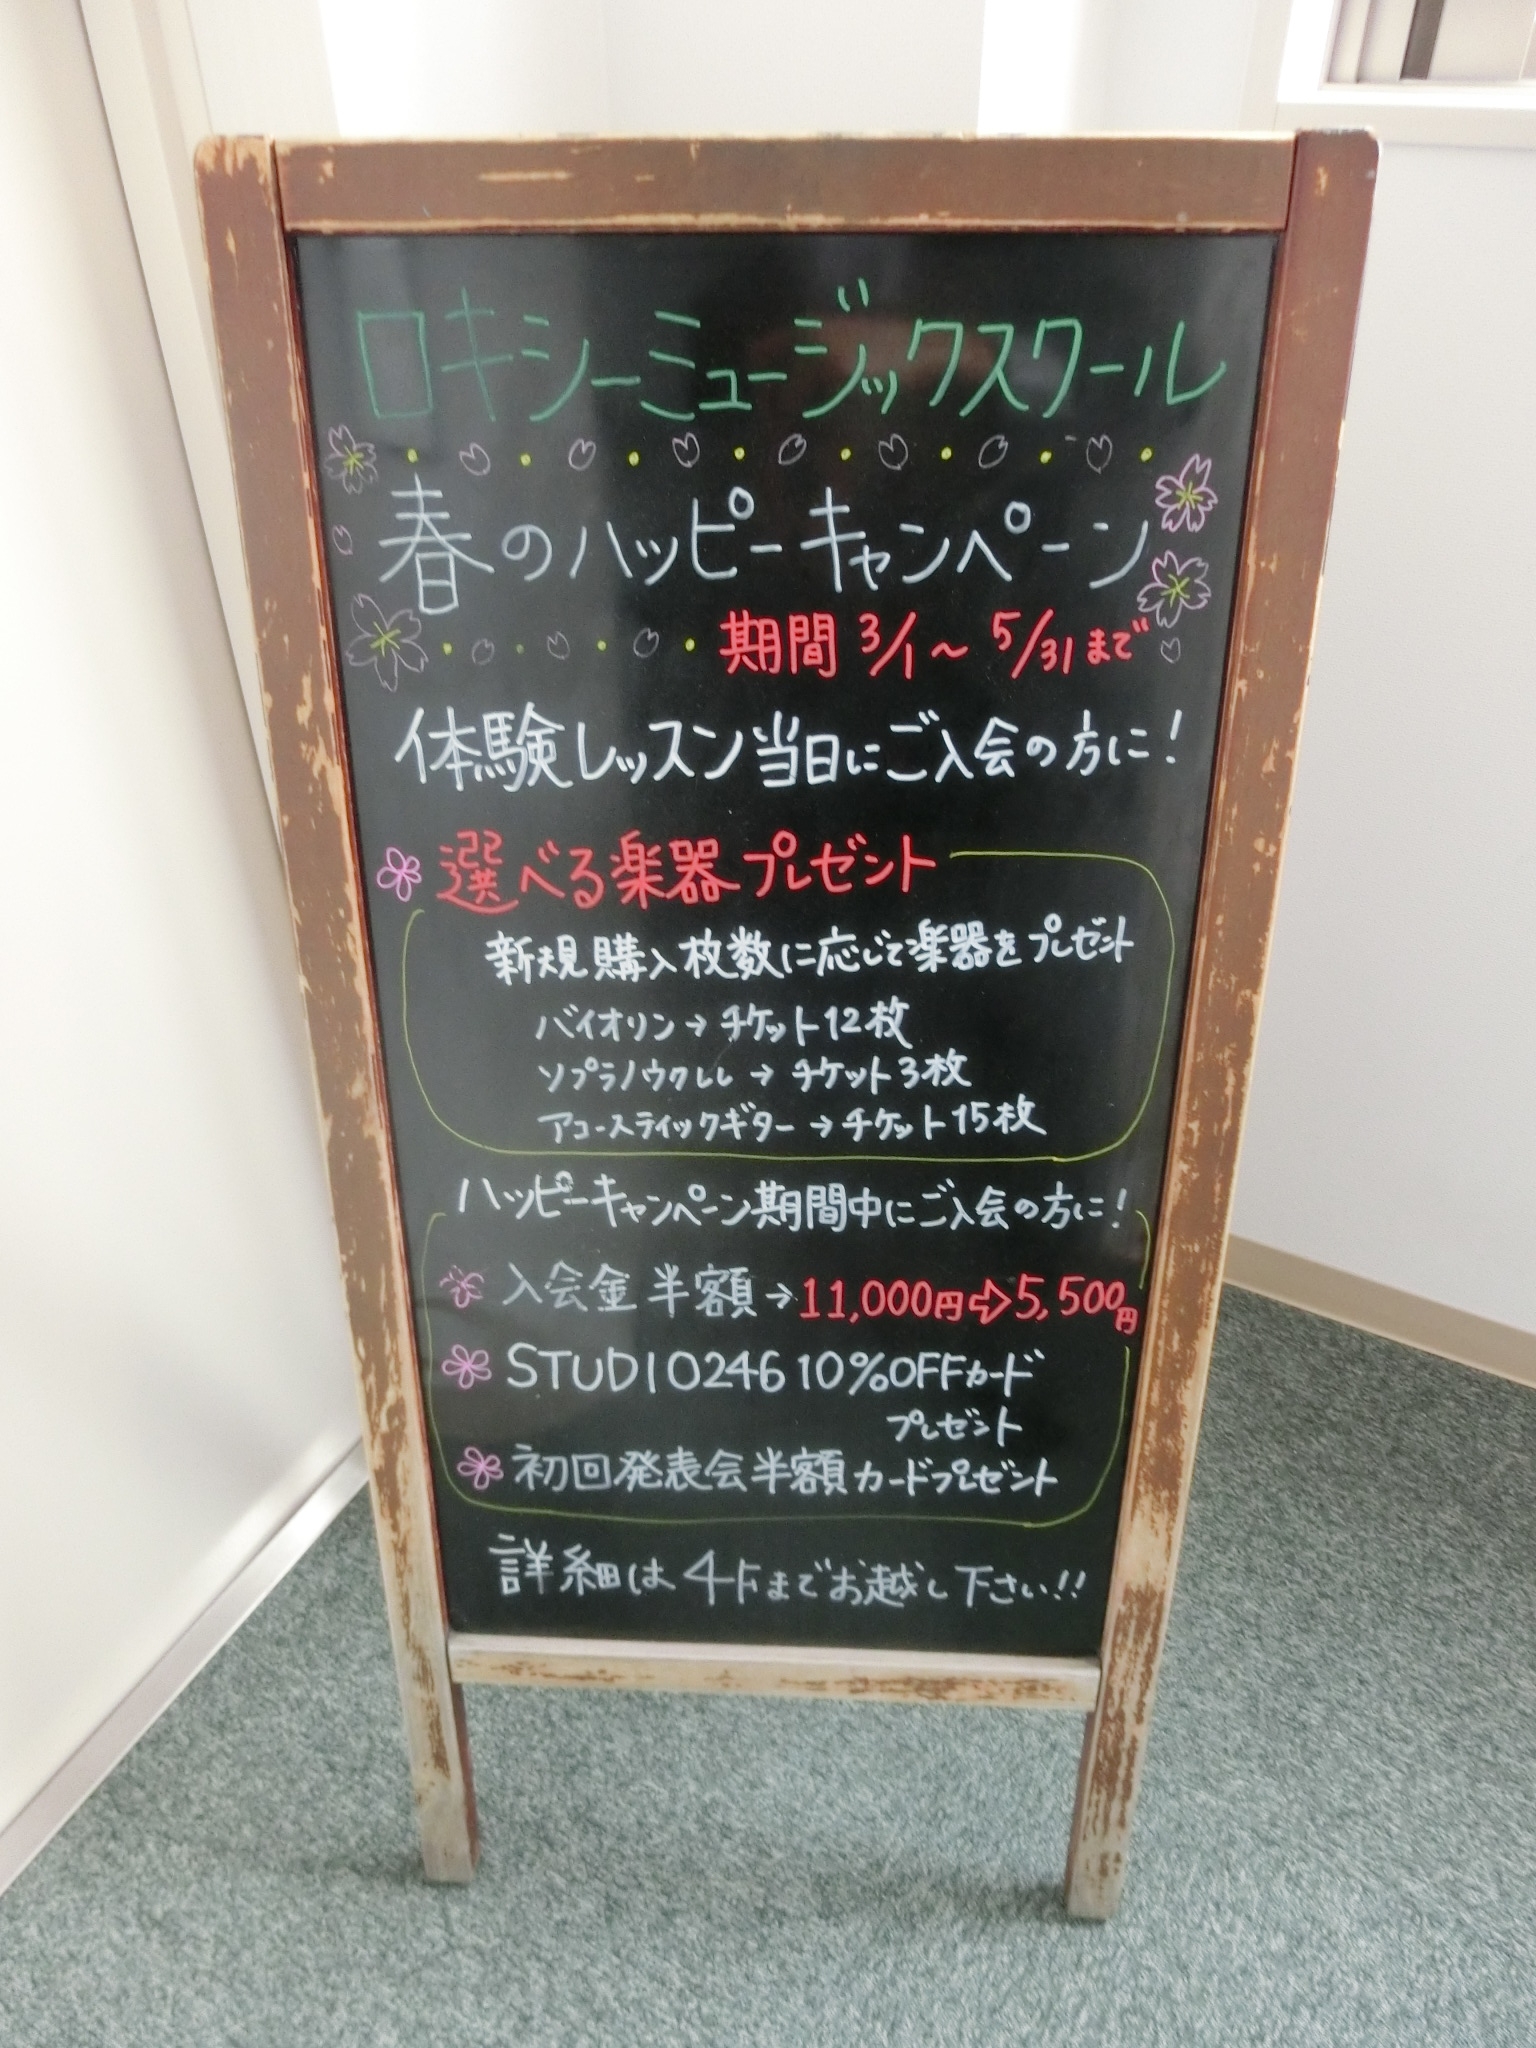 ロキシーミュージックスクール
春のハッピーキャンペーン
期間 3/1～5/31まで
体験レッスン当日にご入会の方に!
選べる楽器プレゼント
新規購入枚数に応じて楽器をプレゼント
バイオリン→チケット12枚
ソプラノウクレレ→チケット3枚
アコースティックギター→チケット15枚
ハッピーキャンペーン期間中にご入会の方に!
入会金半額→11,000円⇨5,500円
STUDIO246 10%OFFカード
プレゼント
初回発表会半額カードプレゼント
詳細は4Fまでお越し下さい!!